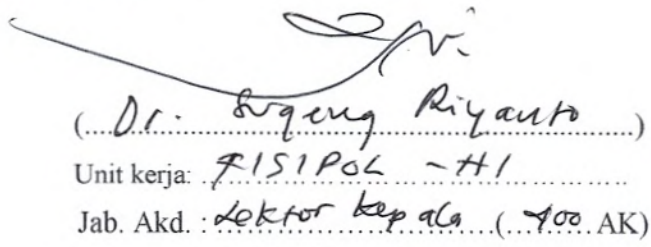 (....Dr. Sugeng Riyanto........)
Unit kerja: FISIPOL - HI
Jab. Akd. : Lektor Kepala (...400 AK)